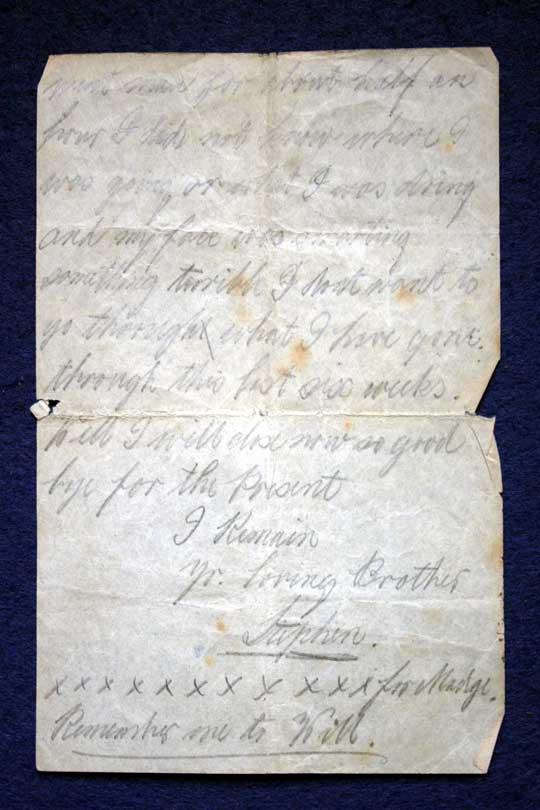 went mad for about half an
hour I did not know where I
was going or what I was doing
and my face was smarting
something terrible I dont want to
go thorough what I have gone
through this last six weeks.
Well I will close now so good
bye for the Present
I Remain
Yr. loving Brother
Stephen.
x x x x x x x x x x x x for Madge.
Remember me to Will.